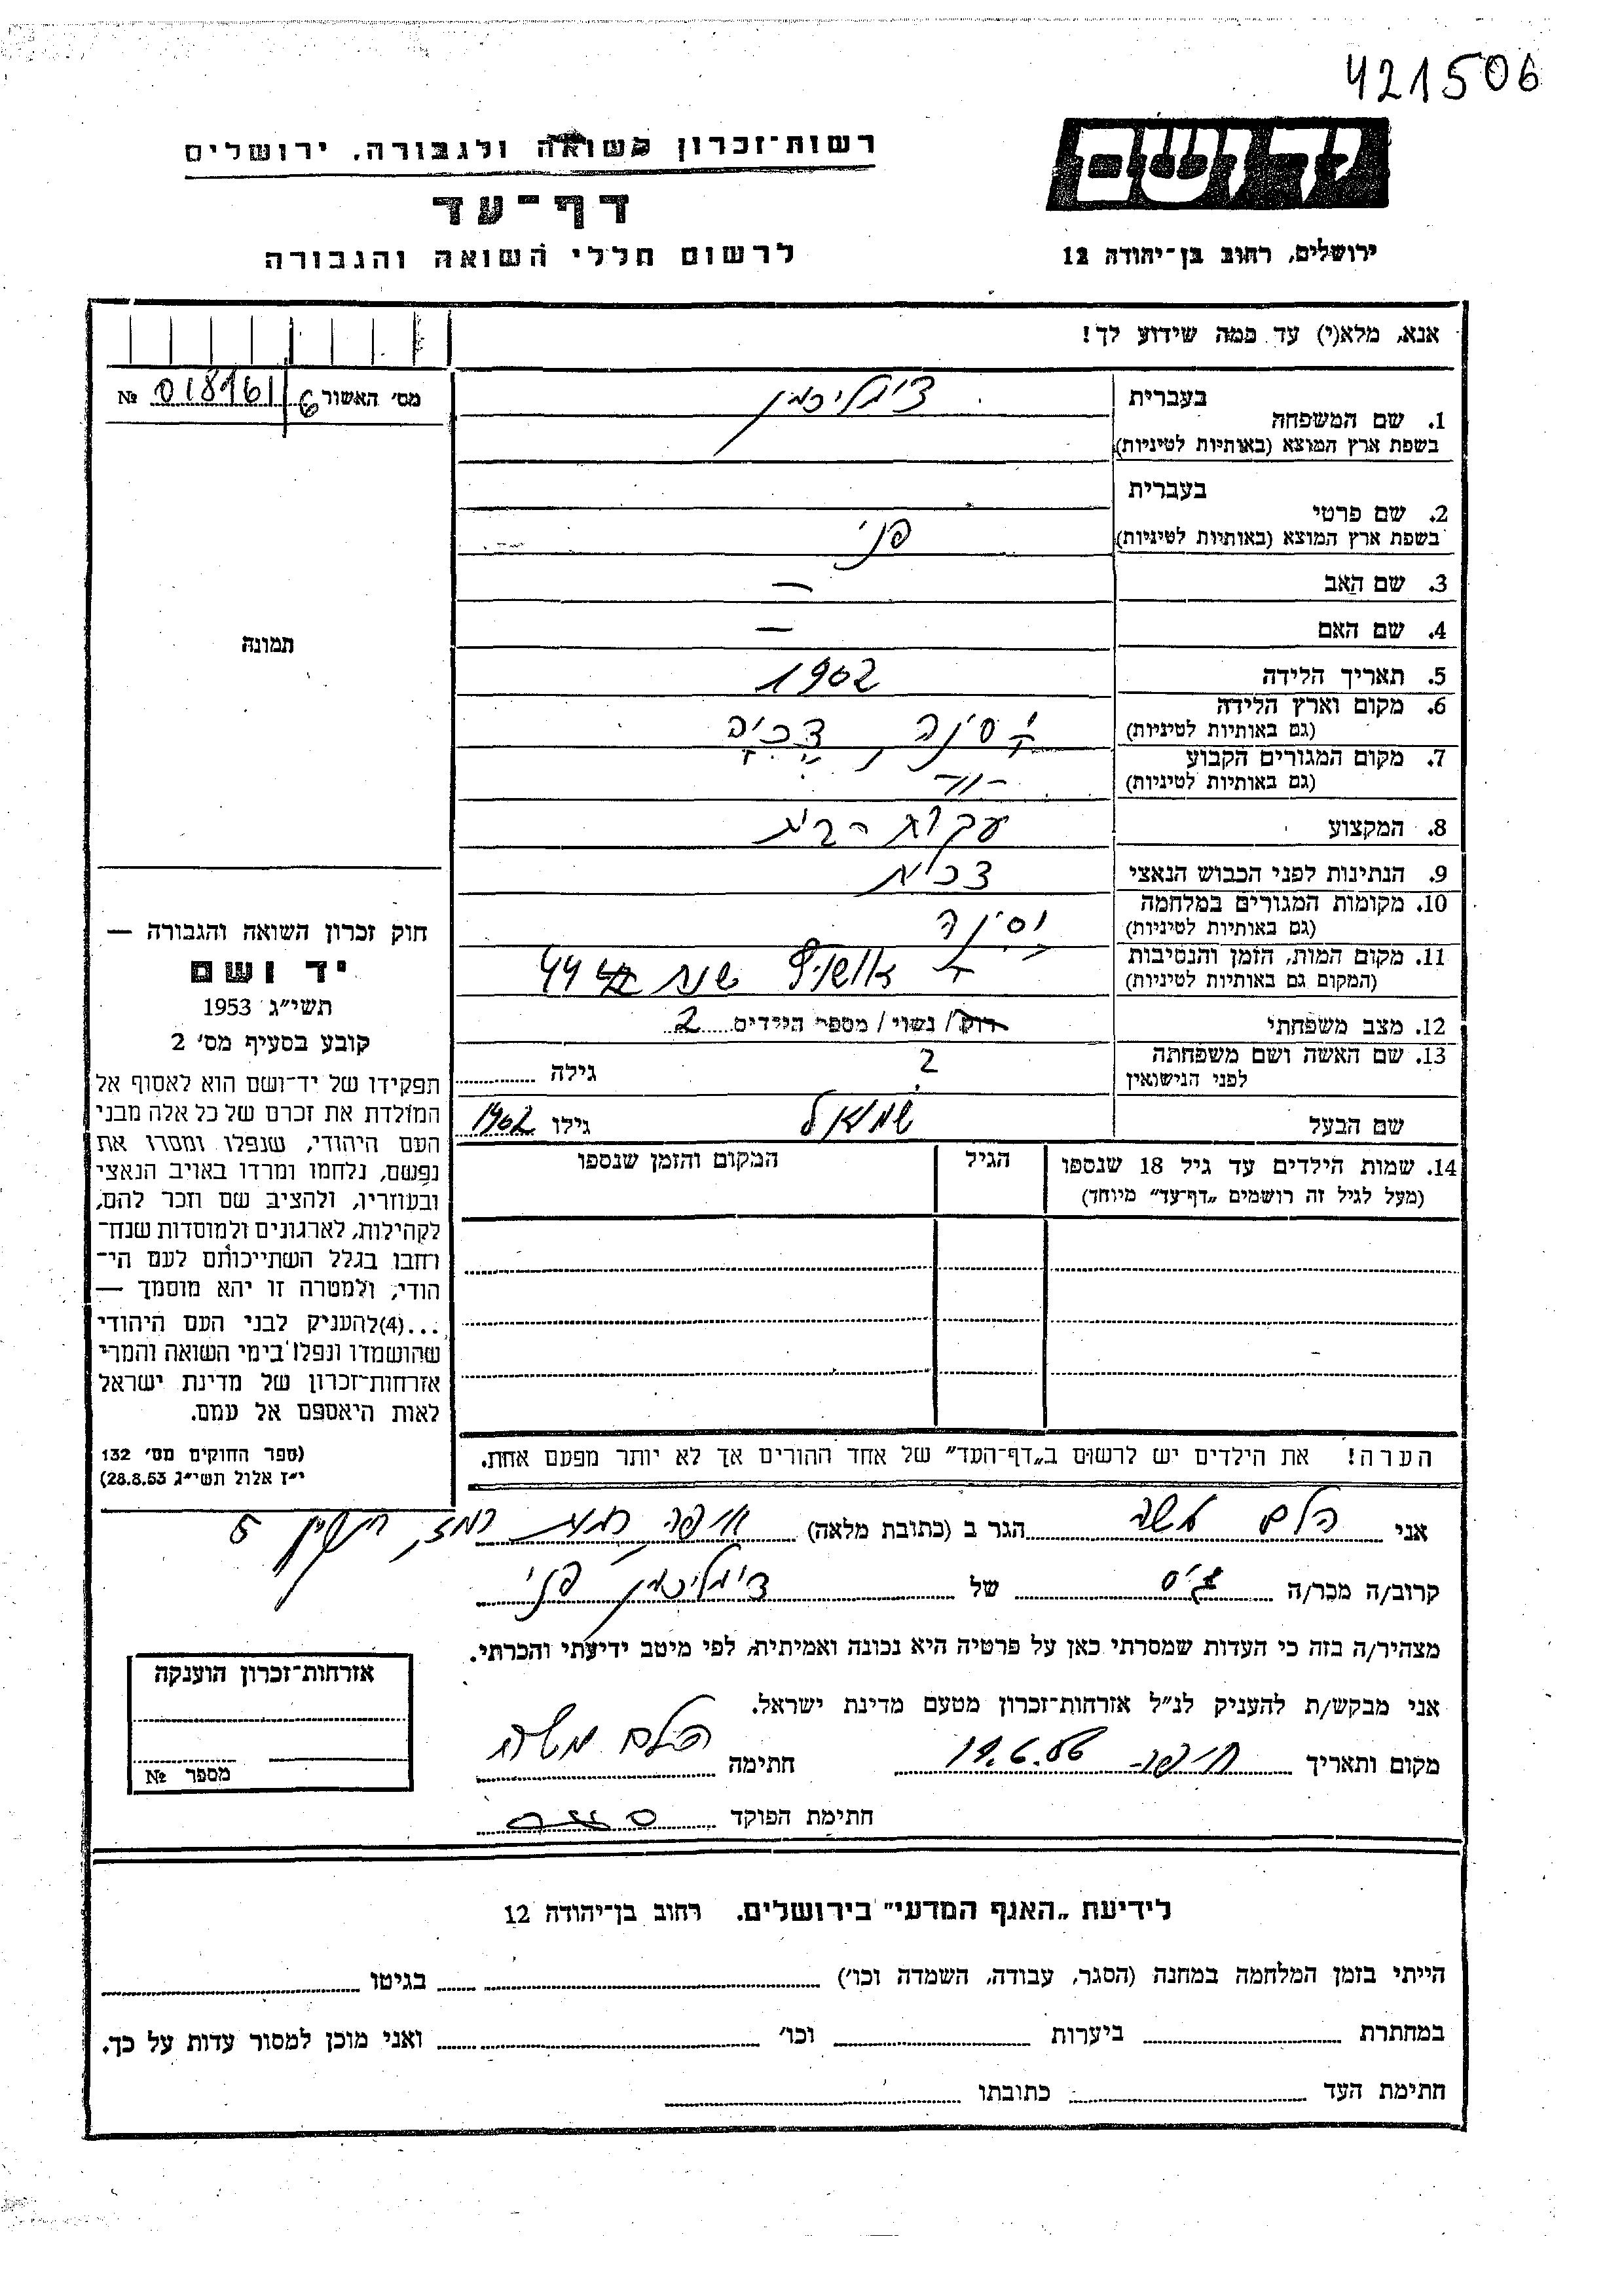 421506
יד ושם
רשות־זכרון לשואה ולגבורה, ירושלים
דף־עד
לרשום חללי השואה והגבורה
ירושלים, רחוב בן־יהודה 12
אנא, מלא(י) עד כמה שידוע לך!
מס׳ האשור 6 018161 №
תמונה
1. שם המשפחה
בעברית
בשפת ארץ המוצא (באותיות לטיניות)
2. שם פרטי
בעברית
בשפת ארץ המוצא (באותיות לטיניות) פני
3. שם האב —
4. שם האם —
5. תאריך הלידה 1902
6. מקום וארץ הלידה
(גם באותיות לטיניות)
7. מקום המגורים הקבוע
(גם באותיות לטיניות) -״-
8. המקצוע עקרת הבית
9. הנתינות לפני הכבוש הנאצי צכית
10. מקומות המגורים במלחמה
(גם באותיות לטיניות)
11. מקום המות, הזמן והנסיבות
(המקום גם באותיות לטיניות) אושויץ שנת 44
12. מצב משפחתי רווק/ נשוי/ מספר הילדים 2
13. שם האשה ושם משפחתה
לפני הנישואין גילה
שם הבעל שמואל גילו 1902
14. שמות הילדים עד גיל 18 שנספו
(מעל לגיל זה רושמים „דף־עד״ מיוחד)
הגיל
המקום והזמן שנספו
הערה! את הילדים יש לרשום ב„דף־העד״ של אחד ההורים אך לא יותר מפעם אחת.
חוק זכרון השואה והגבורה —
יד ושם
תשי״ג 1953
קובע בסעיף מס׳ 2
תפקידו של יד־ושם הוא לאסוף אל
המולדת את זכרם של כל אלה מבני
העם היהודי, שנפלו ומסרו את
נפשם, נלחמו ומרדו באויב הנאצי
ובעוזריו, ולהציב שם וזכר להם,
לקהילות, לארגונים ולמוסדות שנח־
רחבו בגלל השתייכותם לעם הי־
הודי, ולמטרה זו יהא מוסמך —
...(4) להעניק לבני העם היהודי
שהושמדו ונפלו בימי השואה והמרי
אזרחות־זכרון של מדינת ישראל
לאות היאספם אל עמם.
(ספר החוקים מס׳ 132
י״ז אלול תשי״ג 28.8.53)
אני משה הגר ב (כתובת מלאה) חיפה רמת רמז, 5
קרוב/ה מכר/ה גיס של פני
מצהיר/ה בזה כי העדות שמסרתי כאן על פרטיה היא נכונה ואמיתית, לפי מיטב ידיעתי והכרתי.
אני מבקש/ת להעניק לנ״ל אזרחות־זכרון מטעם מדינת ישראל.
מקום ותאריך חיפה 19.6.86 חתימה משה
חתימת הפוקד
אזרחות־זכרון הוענקה
מספר №
לידיעת „האגף המדעי״ בירושלים. רחוב בן־יהודה 12
הייתי בזמן המלחמה במחנה (הסגר, עבודה, השמדה וכו׳) בגיטו
במחתרת ביערות וכו׳ ואני מוכן למסור עדות על כך.
חתימת העד כתובתו